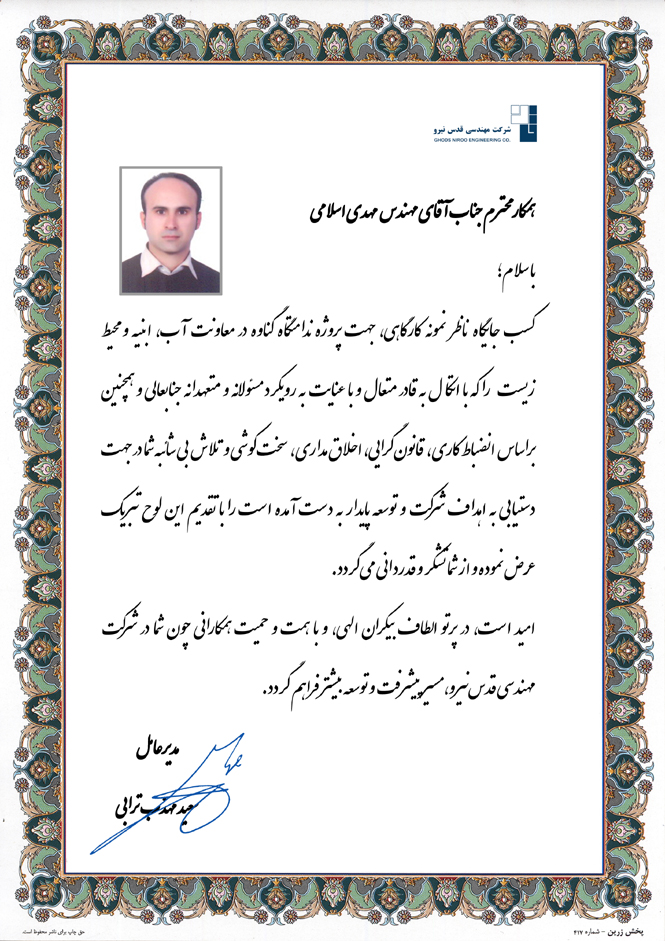 شرکت مهندسی قدس نیرو
GHODS NIROO ENGINEERING CO.
همکار محترم جناب آقای مهندس مهدی اسلامی
با سلام؛
کسب جایگاه ناظر نمونه کارگاهی، جهت پروژه ندامتگاه گناوه در معاونت آب، ابنیه و محیط
زیست را که با اتکال به قادر متعال و با عنایت به رویکرد مسئولانه و متعهدانه جنابعالی و همچنین
براساس انضباط کاری، قانون گرایی، اخلاق مداری، سخت کوشی و تلاش بی شائبه شما در جهت
دستیابی به اهداف شرکت و توسعه پایدار به دست آمده است را با تقدیم این لوح تبریک
عرض نموده و از شما تشکر و قدردانی می گردد.
امید است، در پرتو الطاف بیکران الهی، و با همت و حمیت همکارانی چون شما در شرکت
مهندسی قدس نیرو، مسیر پیشرفت و توسعه بیشتر فراهم گردد.
مدیرعامل
مهذب ترابی
پخش زرین - شماره ۴۱۷
حق چاپ برای ناشر محفوظ است.